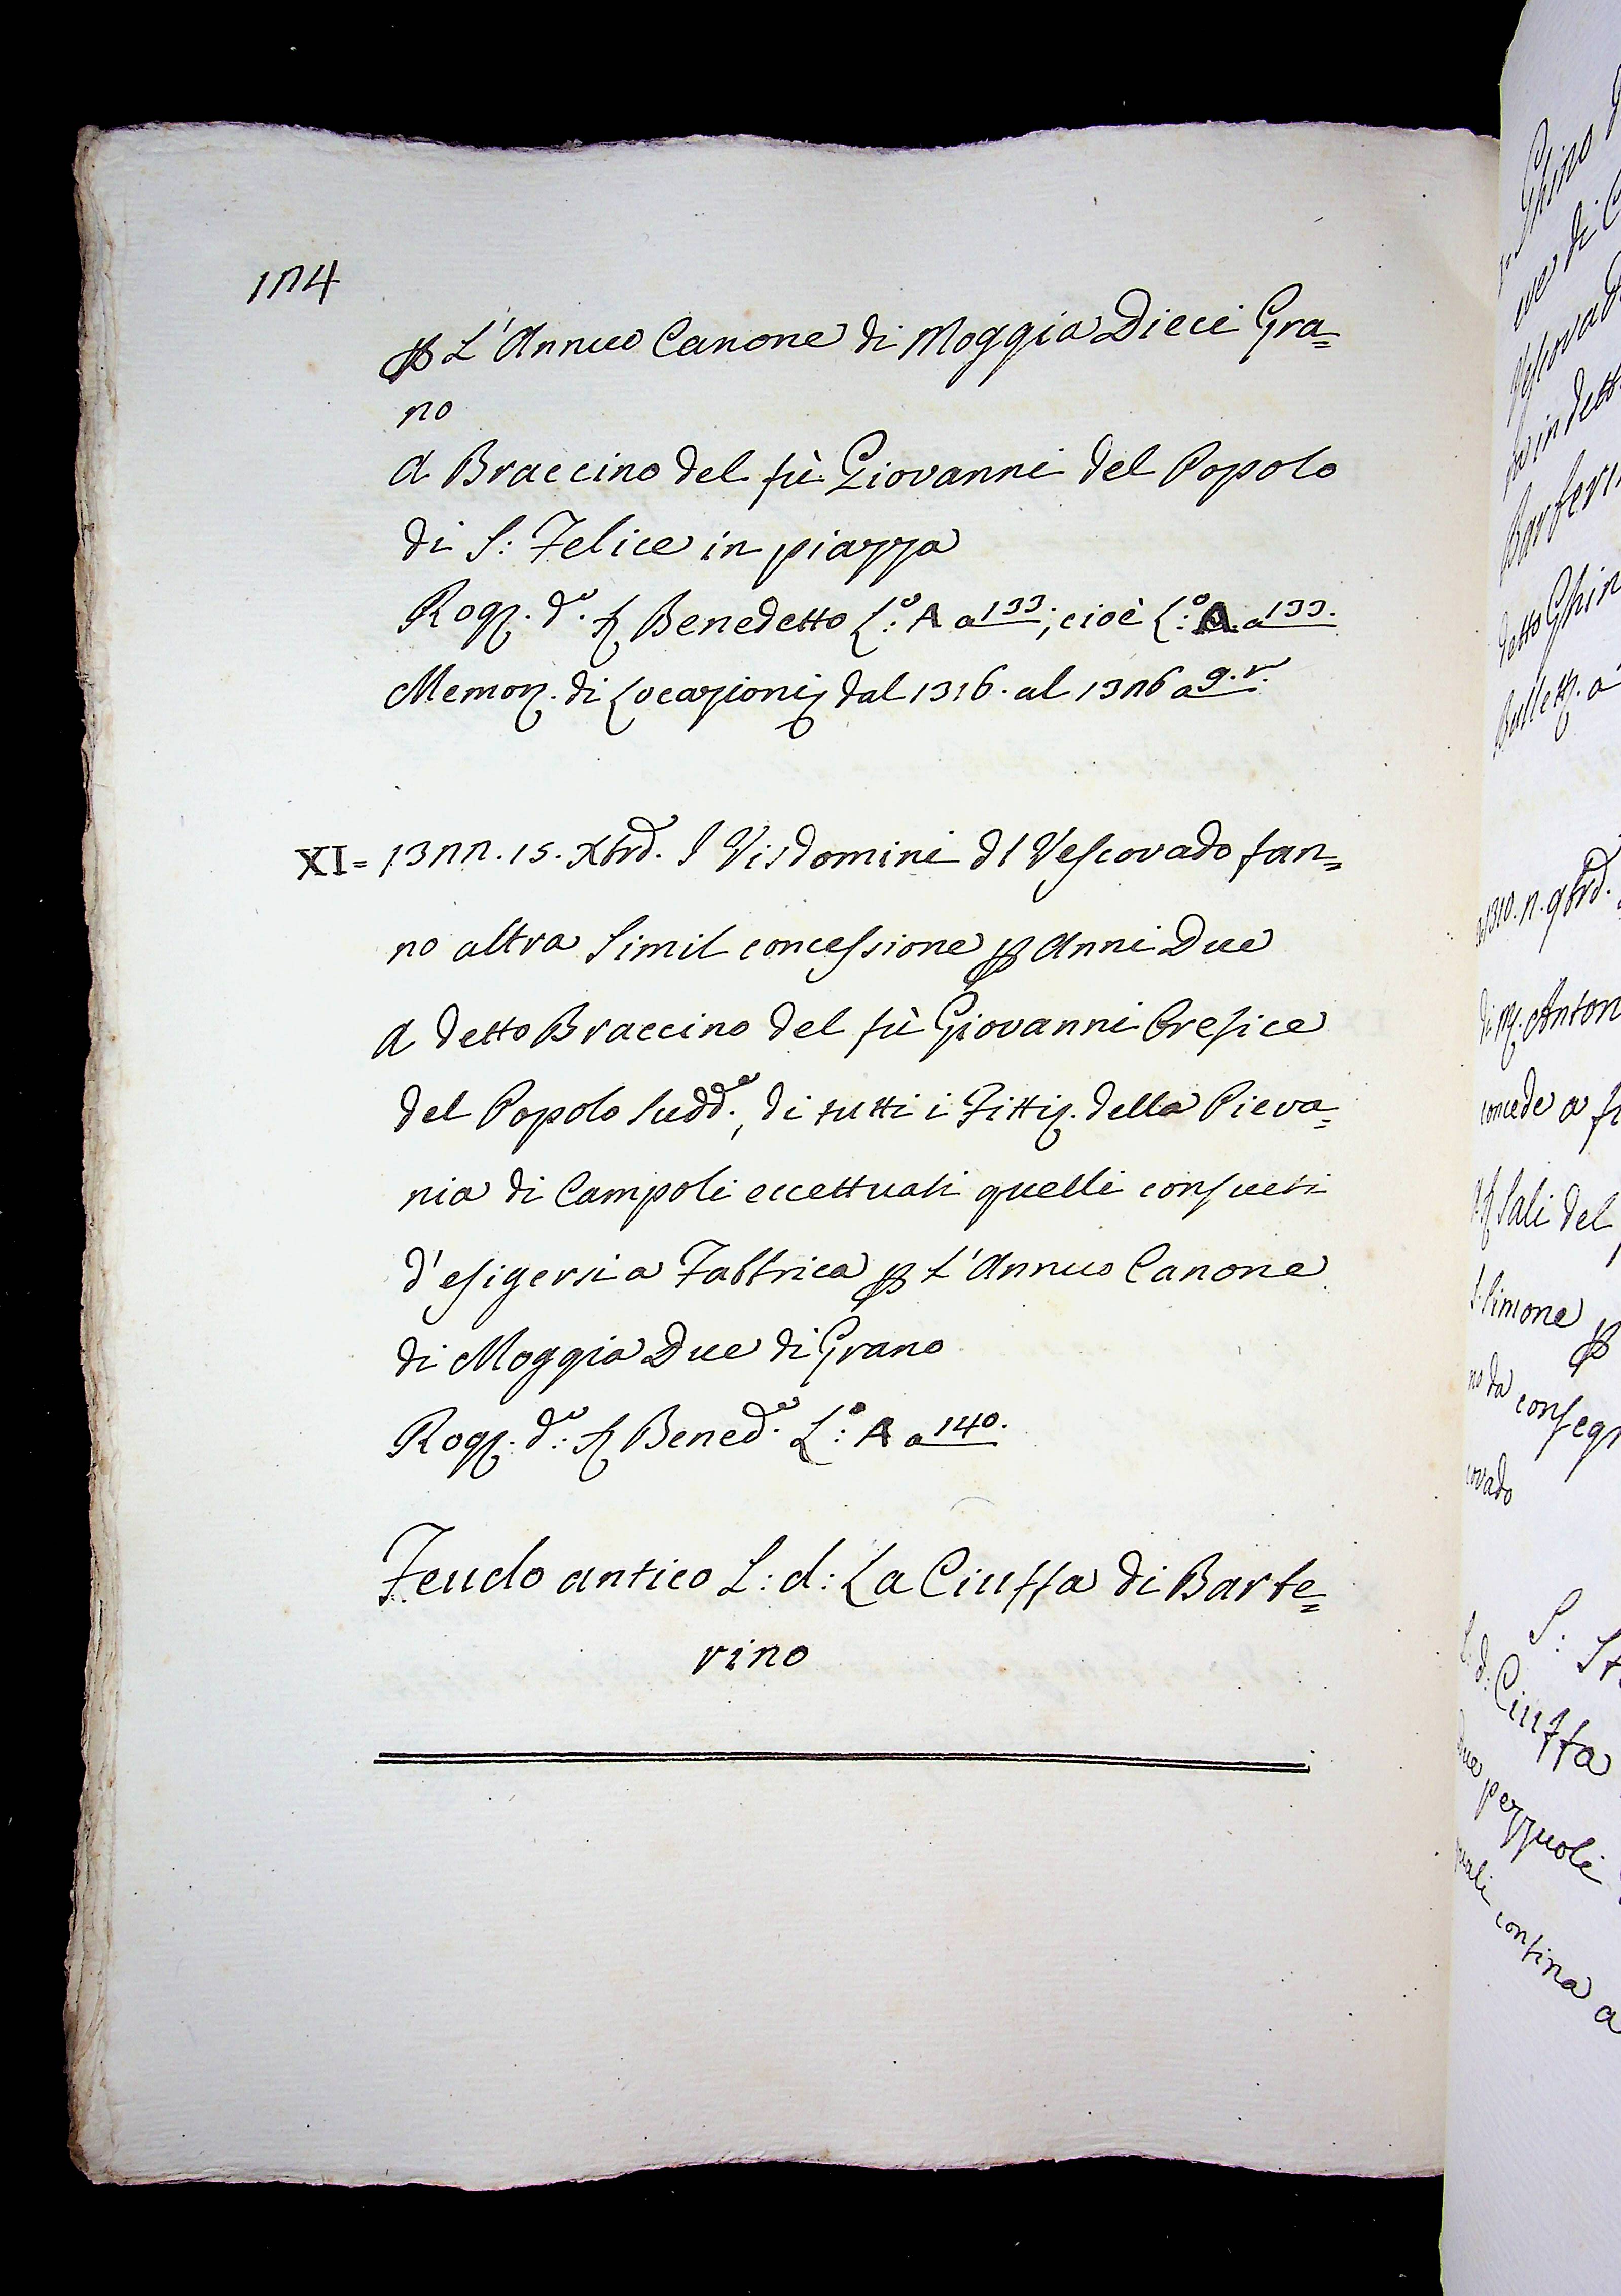 124
℔ L'Annuo Canone di Moggia Dieci Gra=
no
A Braccino del fù Giovanni del Popolo
di S: Felice in piazza
Rog. d.º S. Benedetto L:º A a 133; cioè L:º A. a 133.
Memor. di Locazioni dal 1316. al 1326 a 9. r.
XI= 1322. 15. Xbrê. I Visdomini dl Vescovado fan=
no altra Simil concessione ℔ Anni Due
A detto Braccino del fù Giovanni Orefice
del Popolo sudd.º, di tutti i Fitti della Pieva=
nia di Campoli eccettuati quelli consueti
d'esigersi a Fabbrica ℔ L'Annuo Canone
di Moggia Due di Grano
Rog. d.º: S. Bened.º L:º A a 140.
Feudo antico L: d: La Ciuffa di Barbe=
rino
Ghino
di
Vescovad
in dett
detto Ghin
Bullett. a
1310. 2. 9brê.
di Anton
concede a
Sali del
S. Simone ℔
no da consegn
covado
S: St
L: d: Ciuffa
due pezzuoli
quali confina a